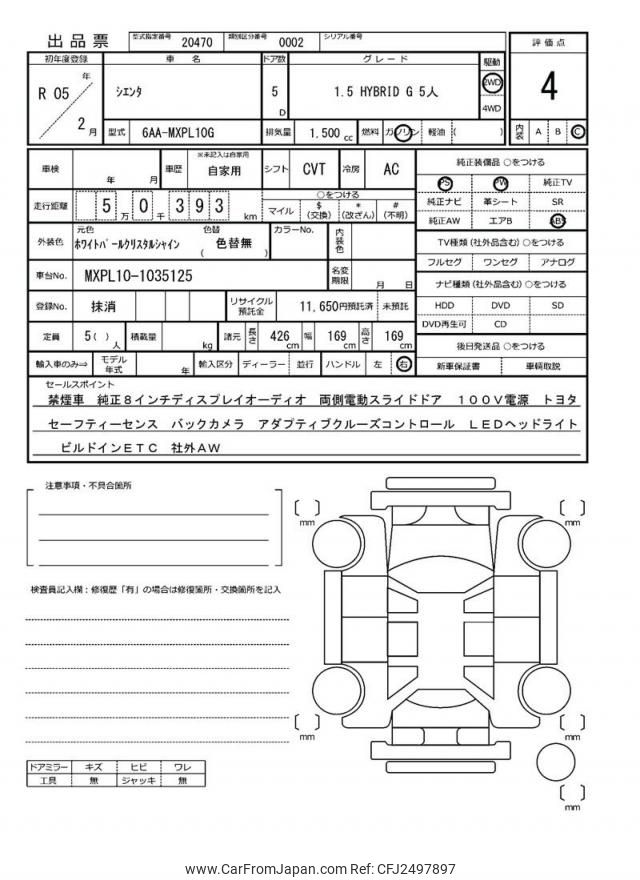 出品票 型式指定番号 20470 類別区分番号 0002 シリアル番号
初年度登録 車名 ドア数 グレード 駆動 評価点
R 05 年 2 月 シエンタ 5 D 1.5 HYBRID G 5人 2WD 4WD 4
型式 6AA-MXPL10G 排気量 1,500 cc 燃料 ガソリン 軽油 ( ) 内装 A B C
車検 年 月 車歴 ※未記入は自家用 自家用 シフト CVT 冷房 AC 純正装備品 ○をつける
PS PW 純正TV
走行距離 5 万 0 千 3 9 3 km ○をつける マイル $ (交換) * (改ざん) # (不明) 純正ナビ 革シート SR
純正AW エアB ABS
外装色 元色 ホワイトパールクリスタルシャイン 色替 ( 色替無 ) カラーNo. 内装色 TV種類 (社外品含む) ○をつける
フルセグ ワンセグ アナログ
車台No. MXPL10-1035125 名変期限 月 日 ナビ種類 (社外品含む) ○をつける
登録No. 抹消 リサイクル預託金 11,650円預託済 未預託 HDD DVD SD
DVD再生可 CD
定員 5 ( ) 人 積載量 kg 諸元 長さ 426 cm 幅 169 cm 高さ 169 cm 後日発送品 ○をつける
輸入車のみ⇒ モデル年式 年 輸入区分 ディーラー 並行 ハンドル 左 右 新車保証書 車輌取説
セールスポイント
禁煙車 純正8インチディスプレイオーディオ 両側電動スライドドア 100V電源 トヨタ
セーフティーセンス バックカメラ アダプティブクルーズコントロール LEDヘッドライト
ビルドインETC 社外AW
注意事項・不具合箇所
[ ] mm [ ] mm
検査員記入欄：修復歴「有」の場合は修復箇所・交換箇所を記入
[ ] mm [ ] mm
ドアミラー キズ ヒビ ワレ
工具 無 ジャッキ 無
[ ] mm
www.CarFromJapan.com Ref: CFJ2497897